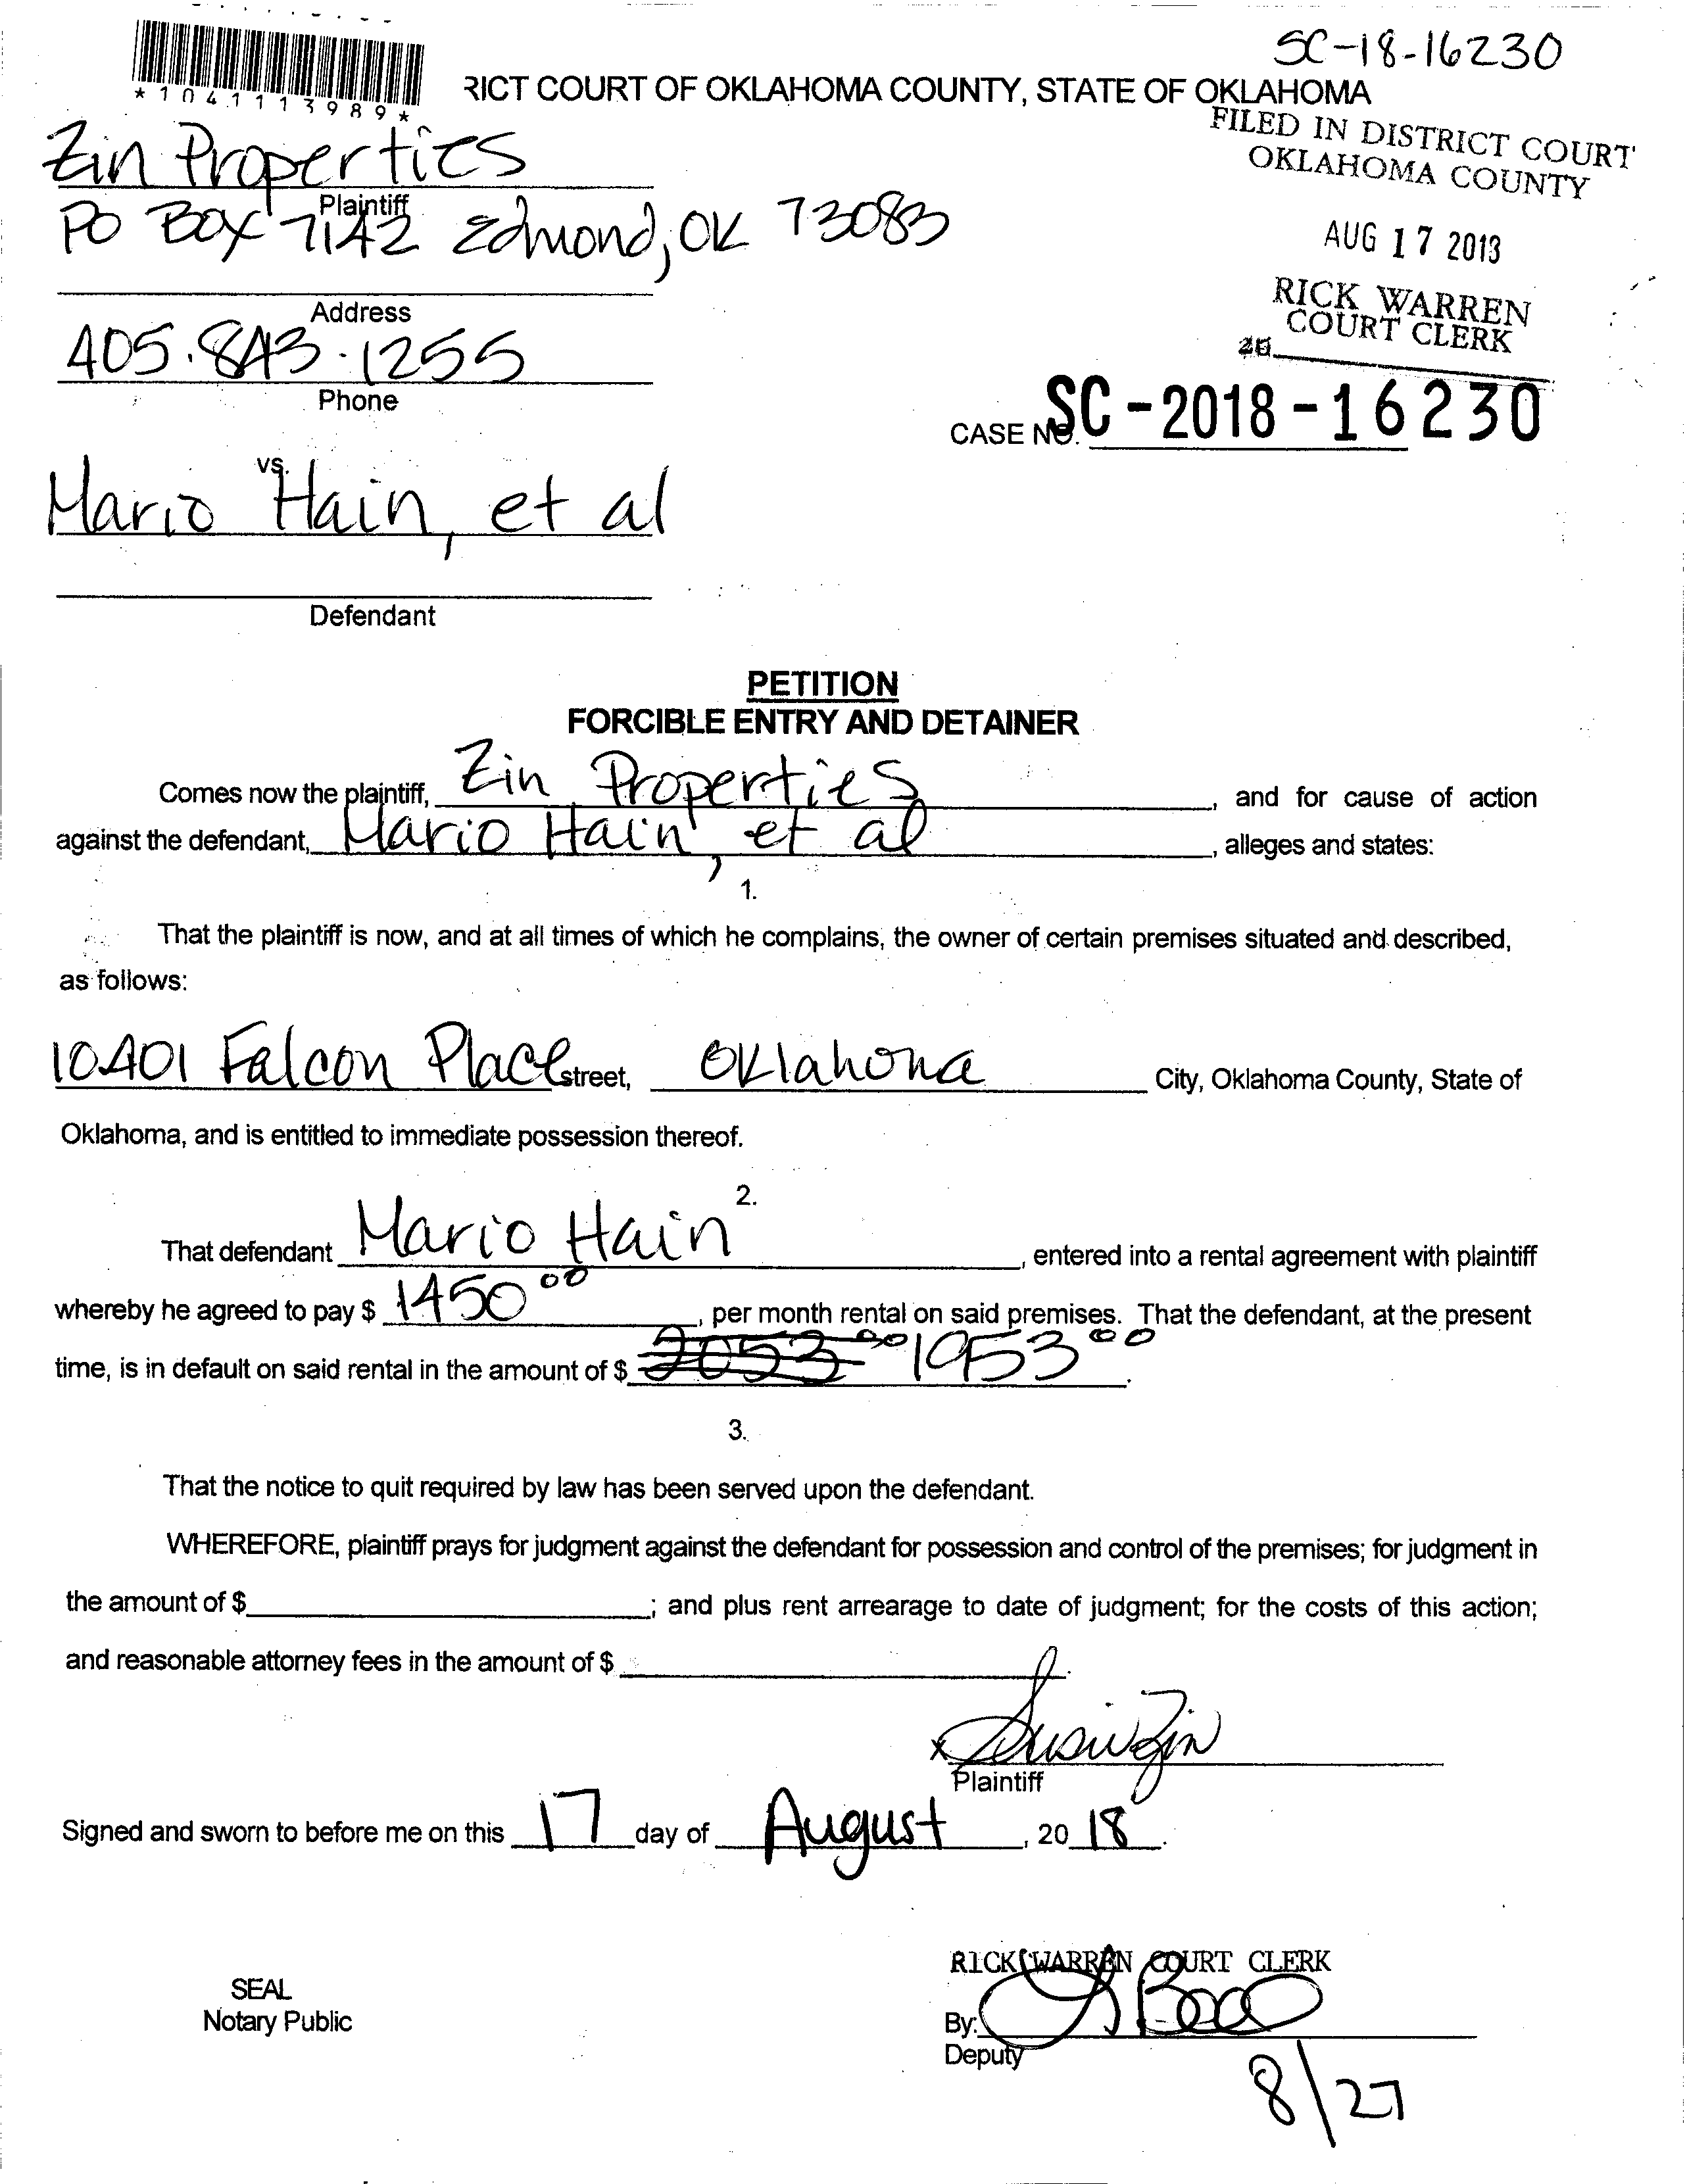 SC-18-16230
*1041113989*
RICT COURT OF OKLAHOMA COUNTY, STATE OF OKLAHOMA
FILED IN DISTRICT COURT
OKLAHOMA COUNTY
Zin Properties
Plaintiff
PO Box 7142 Edmond, OK 73083
AUG 17 2018
Address
RICK WARREN
COURT CLERK
405.843.1255
Phone
CASE NO. SC-2018-16230
vs.
Mario Hain, et al
Defendant
PETITION
FORCIBLE ENTRY AND DETAINER
Comes now the plaintiff, Zin Properties, and for cause of action
against the defendant, Mario Hain, et al, alleges and states:
1.
That the plaintiff is now, and at all times of which he complains, the owner of certain premises situated and described,
as follows:
10401 Falcon Place street, Oklahoma City, Oklahoma County, State of
Oklahoma, and is entitled to immediate possession thereof.
2.
That defendant Mario Hain, entered into a rental agreement with plaintiff
whereby he agreed to pay $ 1450 00, per month rental on said premises. That the defendant, at the present
time, is in default on said rental in the amount of $ 2053 00 1953 00.
3.
That the notice to quit required by law has been served upon the defendant.
WHEREFORE, plaintiff prays for judgment against the defendant for possession and control of the premises; for judgment in
the amount of $ ; and plus rent arrearage to date of judgment; for the costs of this action;
and reasonable attorney fees in the amount of $ .
x Susie Zin
Plaintiff
Signed and sworn to before me on this 17 day of August, 20 18.
RICK WARREN COURT CLERK
SEAL
Notary Public
By:
Deputy
8/27